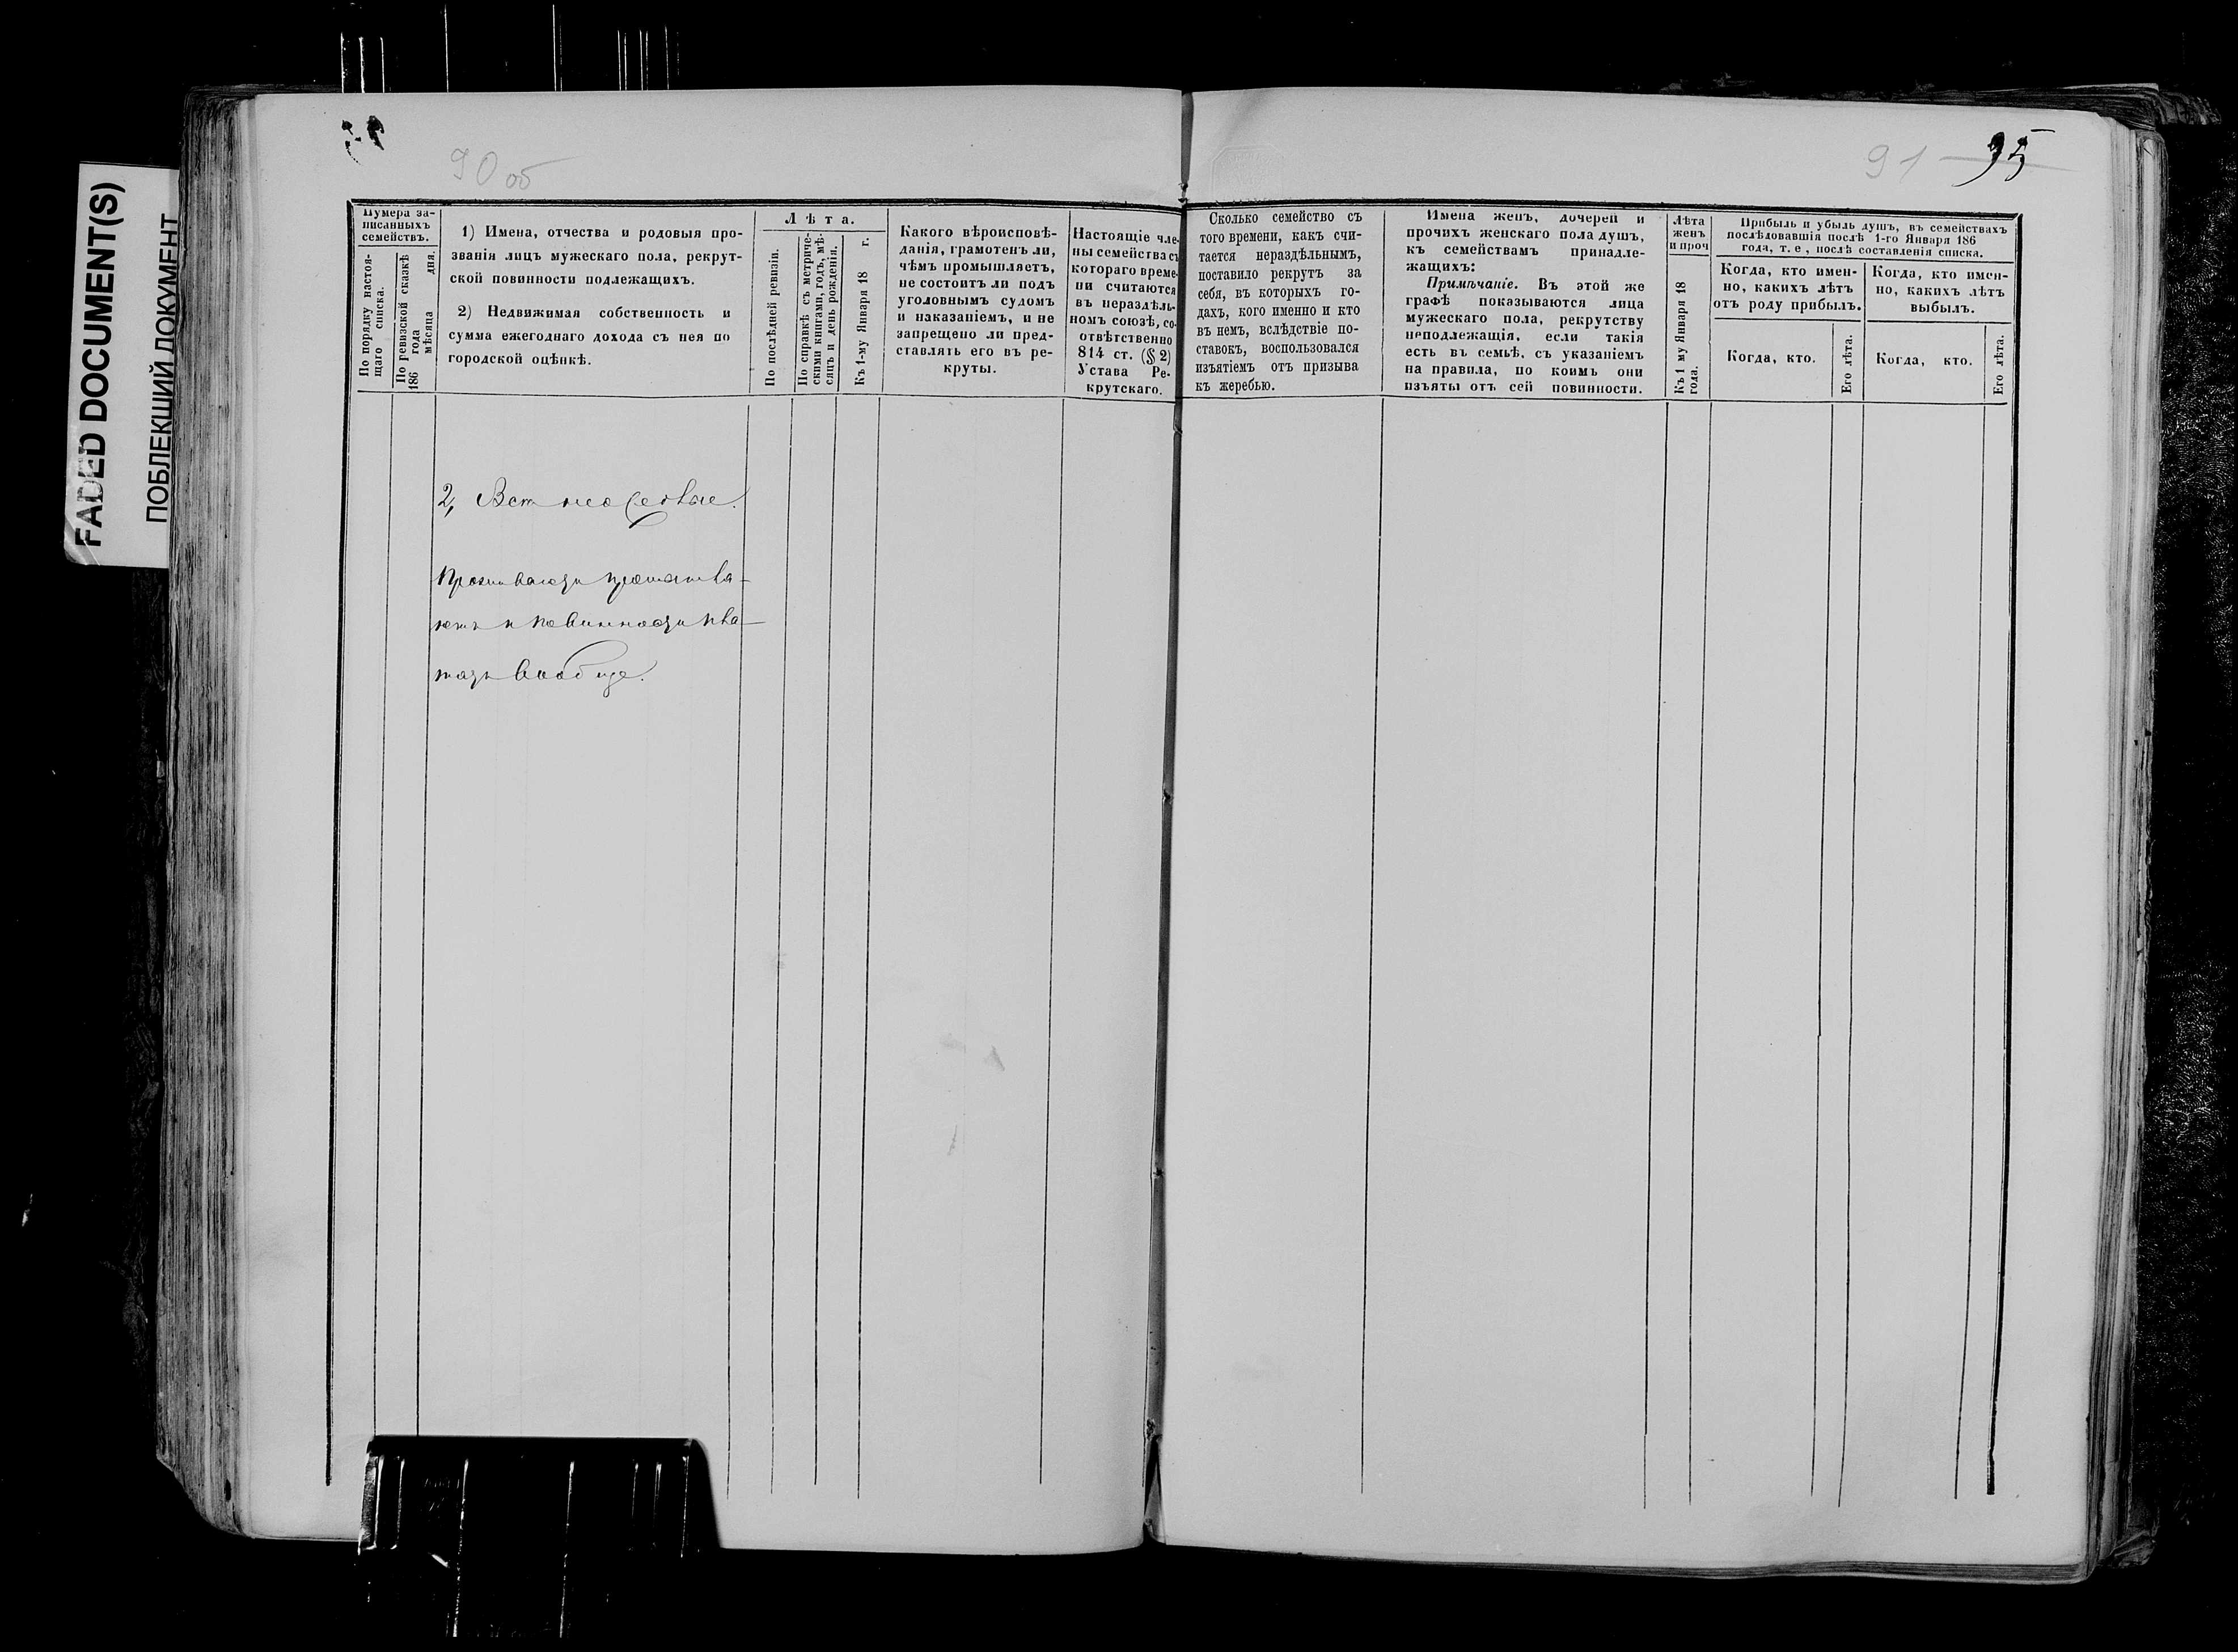 FADED DOCUMENT(S)
ПОБЛЕКШИЙ ДОКУМЕНТ
90 об
91
95
Нумера за-
писанныхъ
семействъ.
По порядку настоя-
щаго списка.
По ревизской сказкѣ
186 года
мѣсяца дня.
1) Имена, отчества и родовыя про-
званія лицъ мужескаго пола, рекрут-
ской повинности подлежащихъ.
2) Недвижимая собственность и
сумма ежегоднаго дохода съ нея по
городской оцѣнкѣ.
Лѣта.
По послѣдней ревизіи.
По справкѣ съ метриче-
скими книгами, годъ, мѣ-
сяцъ и день рожденія.
Къ 1-му Января 18 г.
Какого вѣроисповѣ-
данія, грамотенъ ли,
чѣмъ промышляетъ,
не состоитъ ли подъ
уголовнымъ судомъ
и наказаніемъ, и не
запрещено ли пред-
ставлять его въ ре-
круты.
Настоящіе чле-
ны семейства съ
котораго време-
ни считаются
въ нераздѣль-
номъ союзѣ, со-
отвѣтственно
814 ст. (§ 2)
Устава Ре-
крутскаго.
Сколько семейство съ
того времени, какъ счи-
тается нераздѣльнымъ,
поставило рекрутъ за
себя, въ которыхъ го-
дахъ, кого именно и кто
въ немъ, вслѣдствіе по-
ставокъ, воспользовался
изъятіемъ отъ призыва
къ жеребью.
Имена женъ, дочерей и
прочихъ женскаго пола душъ,
къ семействамъ принадле-
жащихъ:
Примѣчаніе. Въ этой же
графѣ показываются лица
мужескаго пола, рекрутству
неподлежащія, если такія
есть въ семьѣ, съ указаніемъ
на правила, по коимъ они
изъяты отъ сей повинности.
Лѣта
женъ
и проч
Къ 1 му Января 18
года.
Прибыль и убыль душъ, въ семействахъ
послѣдовавшія послѣ 1-го Января 186
года, т. е, послѣ составленія списка.
Когда, кто имен-
но, какихъ лѣтъ
отъ роду прибылъ.
Когда, кто имен-
но, какихъ лѣтъ
выбылъ.
Когда, кто.
Его лѣта.
Когда, кто.
Его лѣта.
2,
вообще.